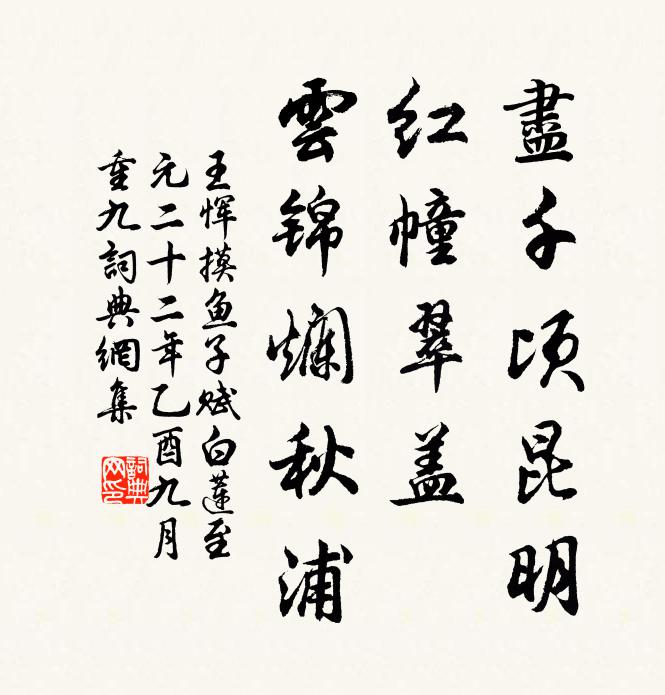 盡千頃昆明
红幢翠盖
雲锦爛秋浦
王恽摸鱼子赋白蓮至
元二十二年乙酉九月
重九詞典網集
詞典网印